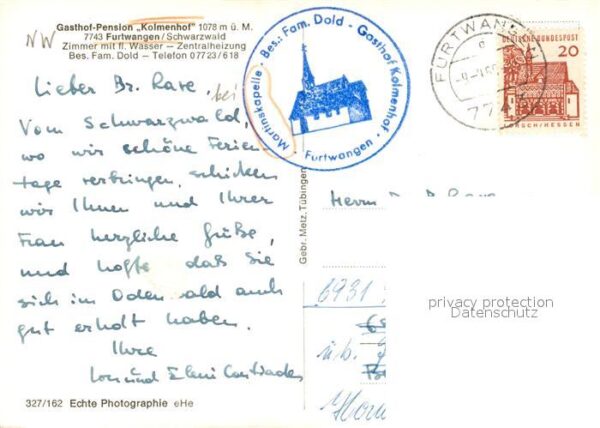 Gasthof-Pension „Kolmenhof" 1078 m ü. M.
7743 Furtwangen/Schwarzwald
Zimmer mit fl. Wasser — Zentralheizung
Bes. Fam. Dold — Telefon 07723/618
NW
Lieber Br. Rare,
bei
Vom Schwarzwald,
wo wir schöne Ferien-
tage verbringen, schicken
wir Ihnen und Ihrer
Frau herzliche Grüße,
und hoffe daß Sie
sich im Odenwald auch
gut erholt haben.
Ihre
und
327/162 Echte Photographie eHe
Gebr. Metz, Tübingen
Martinskapelle · Bes.: Fam. Dold - Gasthof Kolmenhof ·
Furtwangen
FURTWANGEN
774
DEUTSCHE BUNDESPOST
20
LORSCH/HESSEN
Herrn
6931
ü.b.
privacy protection
Datenschutz